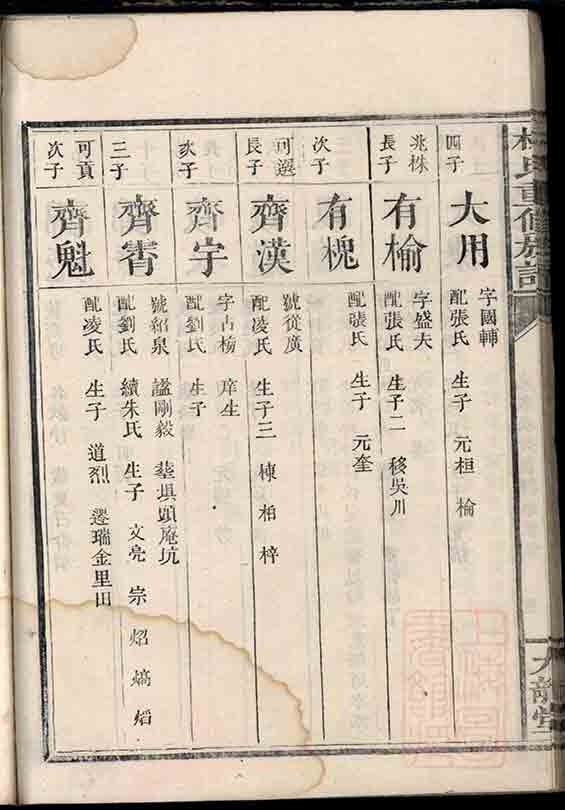 四子
大用
字國輔
配張氏 生子 元桓 棆
兆株
長子
有棆
字盛夫
配張氏 生子二 移吳川
次子
有槐
配張氏 生子 元奎
可選
長子
齊漢
號從廣
配凌氏 生子三 棟 柏 梓
次子
齊宇
字古楊 庠生
配劉氏 生子
三子
齊霄
號紹泉 謚剛毅 塟埧頭庵坑
配劉氏 續朱氏 生子 文亮 宗 炤 熇 熖
可貢
次子
齊魁
配凌氏 生子 道烈 遷瑞金里田
氏重修族譜